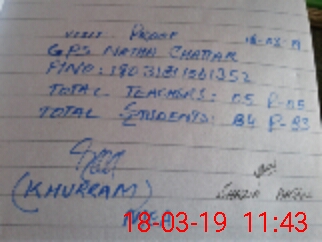 VISIT PROOF 18-03-19
GPS NATHU CHATTAR
TOTAL TEACHERS: 05 P-05
TOTAL STUDENTS: 84 P-83
(KHURRAM)
MEA
18-03-19 11:43